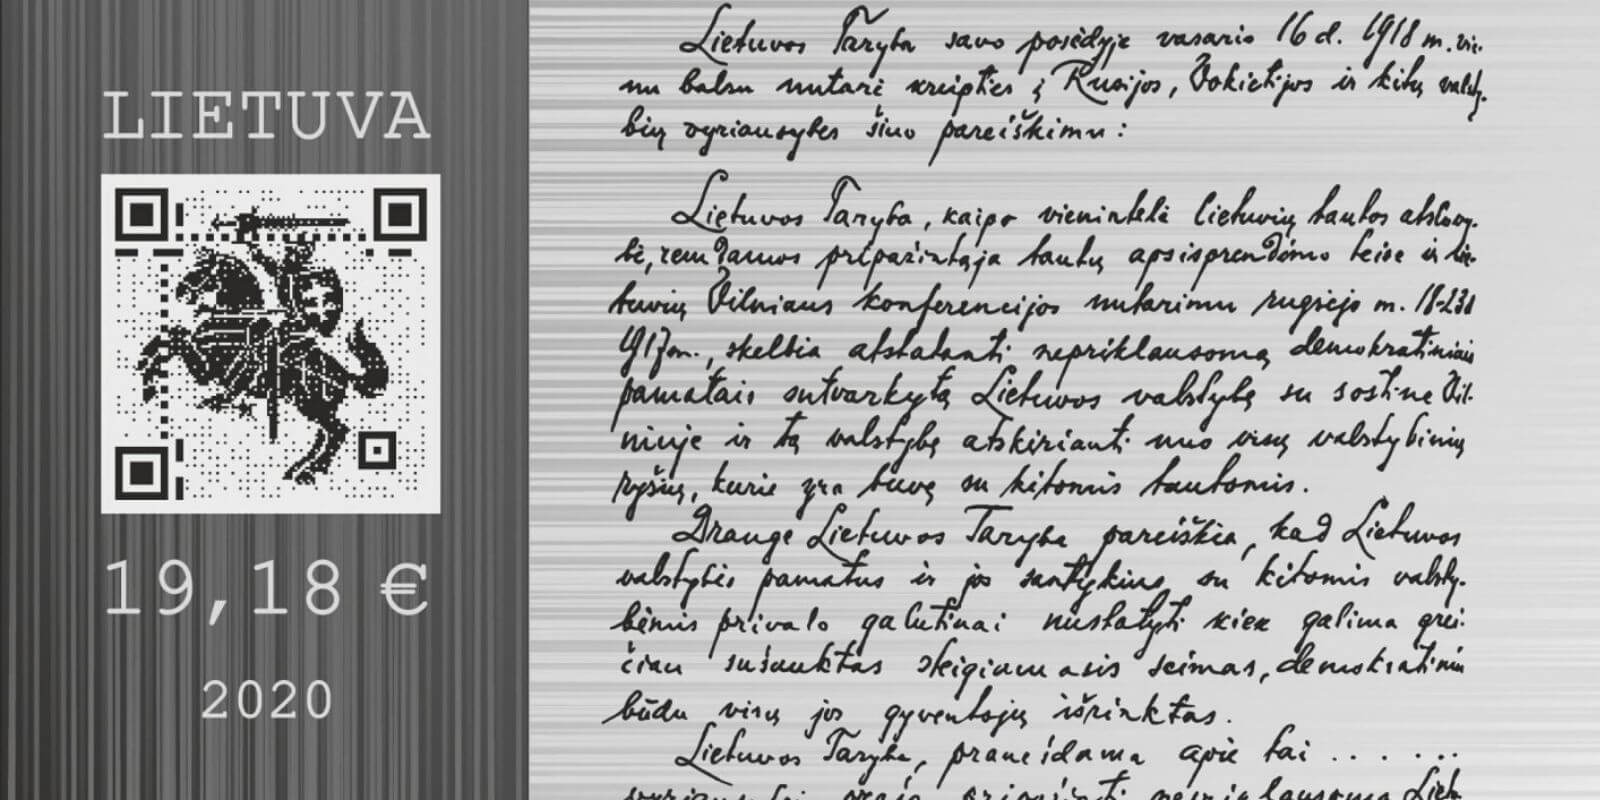 LIETUVA
19,18 €
2020
Lietuvos Taryba savo posėdyje vasario 16 d. 1918 m. vie-
nu balsu nutarė kreipties į Rusijos, Vokietijos ir kitų valsty-
bių vyriausybes šiuo pareiškimu:
Lietuvos Taryba, kaipo vienintelė lietuvių tautos atstovy-
bė, remdamos pripažintąja tautų apsisprendimo teise ir lie-
tuvių Vilniaus konferencijos nutarimu rugsėjo m. 18-23 d
1917 m., skelbia atstatanti nepriklausomą demokratiniais
pamatais sutvarkytą Lietuvos valstybę su sostine Vil-
niuje ir tą valstybę atskirianti nuo visų valstybinių
ryšių, kurie yra buvę su kitomis tautomis.
Drauge Lietuvos Taryba pareiškia, kad Lietuvos
valstybės pamatus ir jos santykius su kitomis valsty-
bėmis privalo galutinai nustatyti kiek galima grei-
čiau sušauktas steigiamasis seimas, demokratiniu
būdu visų jos gyventojų išrinktas.
Lietuvos Taryba, pranešdama apie tai . . . . . .